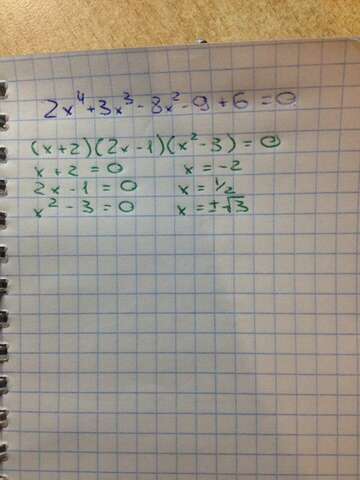 2x⁴+3x³-8x²-9+6=0
(x+2)(2x-1)(x²-3)=0
x+2=0 x=-2
2x-1=0 x=1/2
x²-3=0 x=±√3